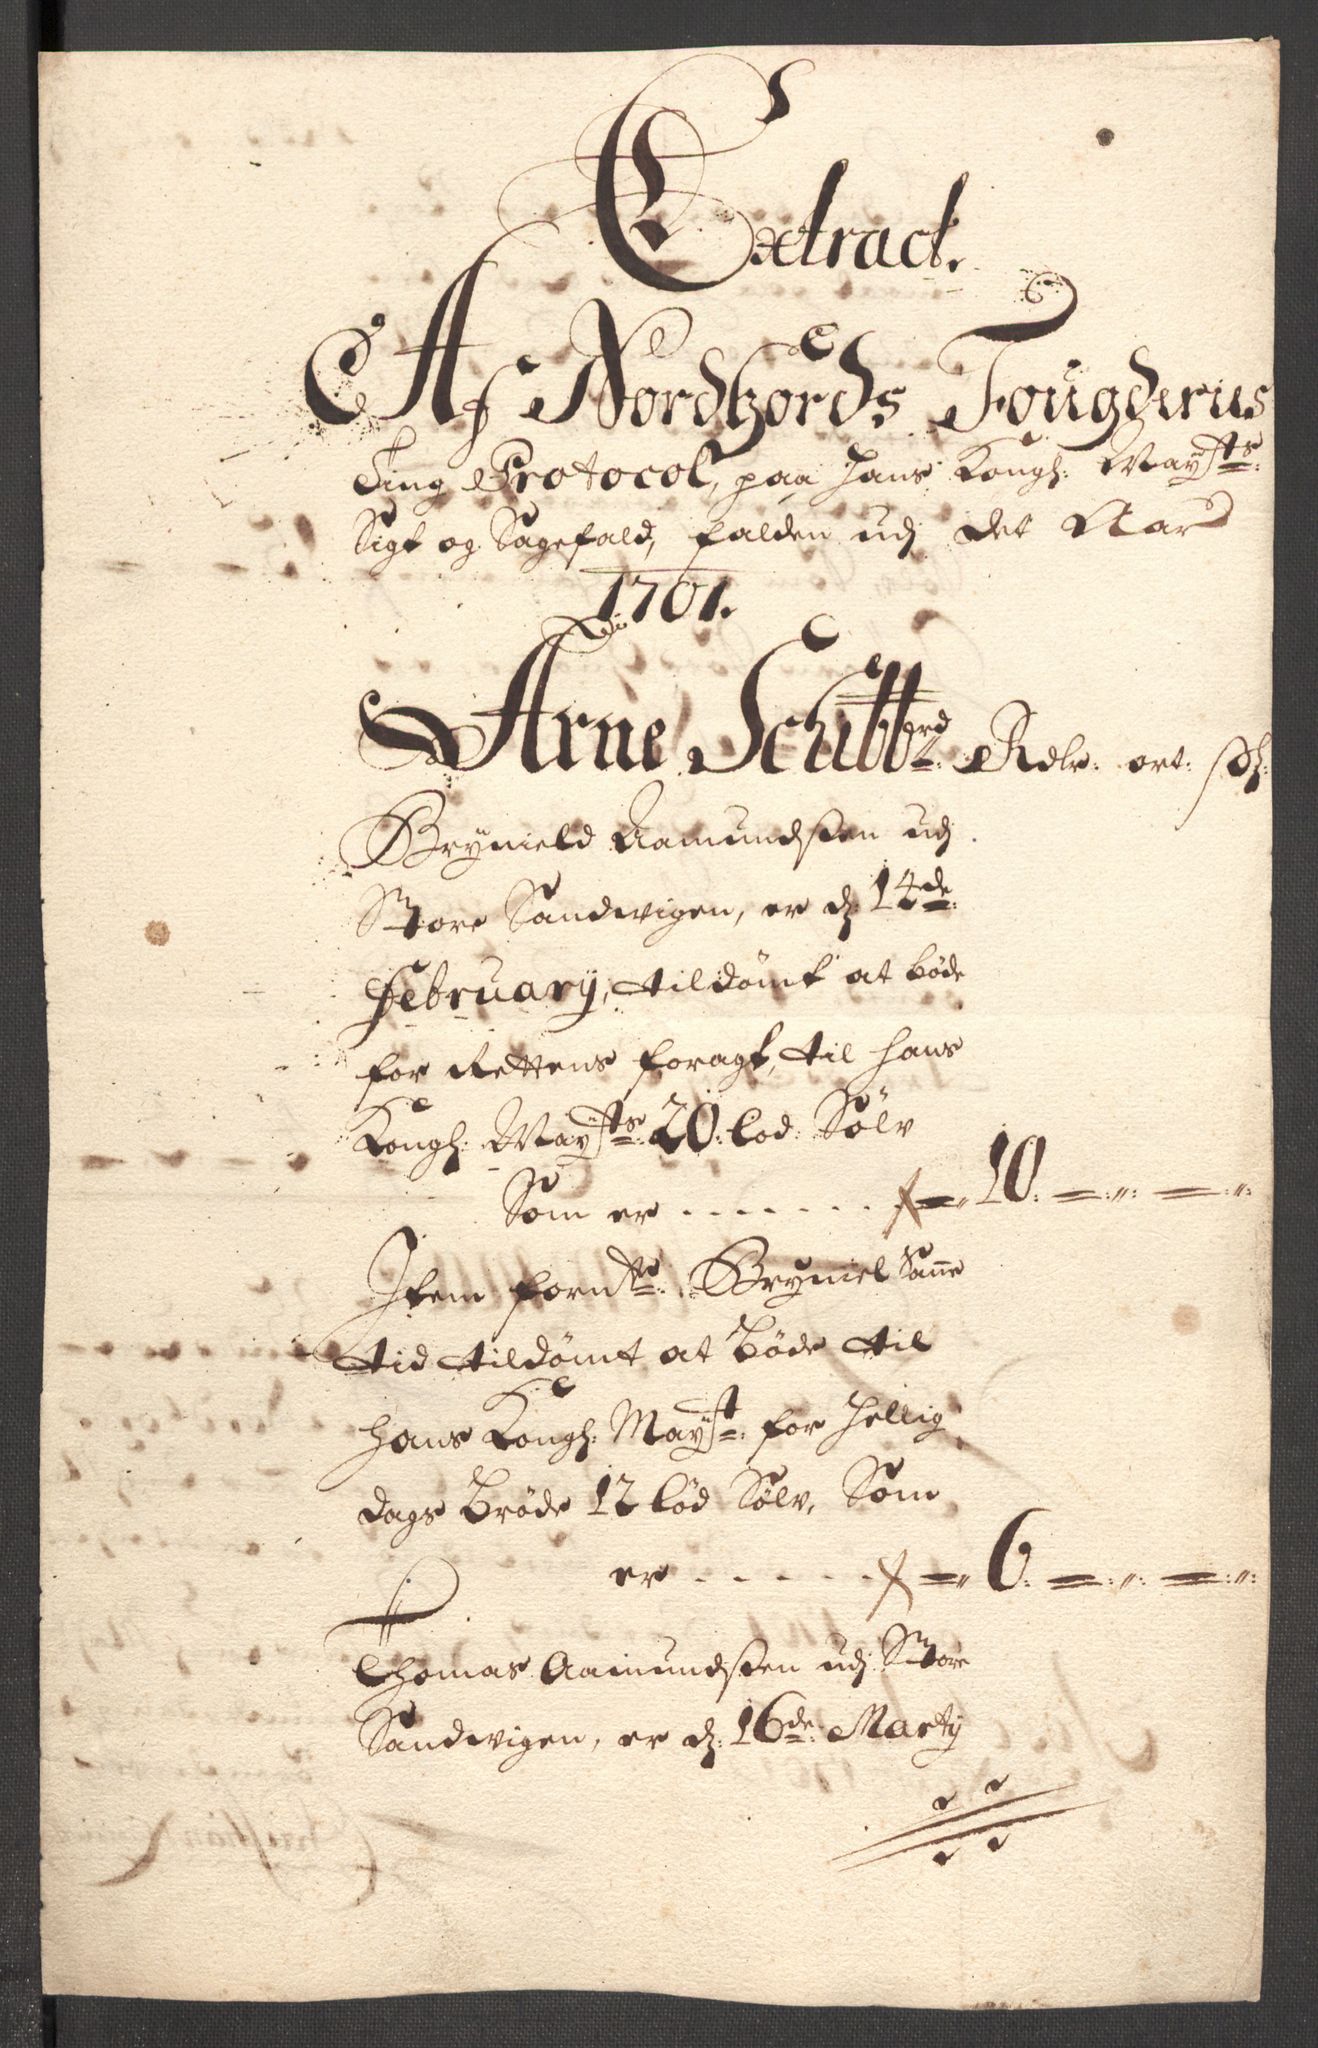 Extract.
Af Nordhords Fougderies
Ting Protocol, paa Hans Kongl: Mayts:
Sigt og Sagefald, falden udj det Aar
1701.
Arne Schibbrd: Rdlr: ort: sk:
Brynield Aamundsen udj
Store Sandwigen, er d: 14de:
February, tildømt at bøde
for Rettens foragt, til hans
Kongl: Mayts: 20: lod: Sølv
Som er . . . . . . . 10:
Item fornte: Bryniel Samme
tid tildømt at bøde til
hans Kongl: Mayt: for hellig
dags brøde 12 lod Sølv, Som
er . . . . . . 6:
Thomas Aamundsen udj Store
Sandwigen, er d: 16de: Marty